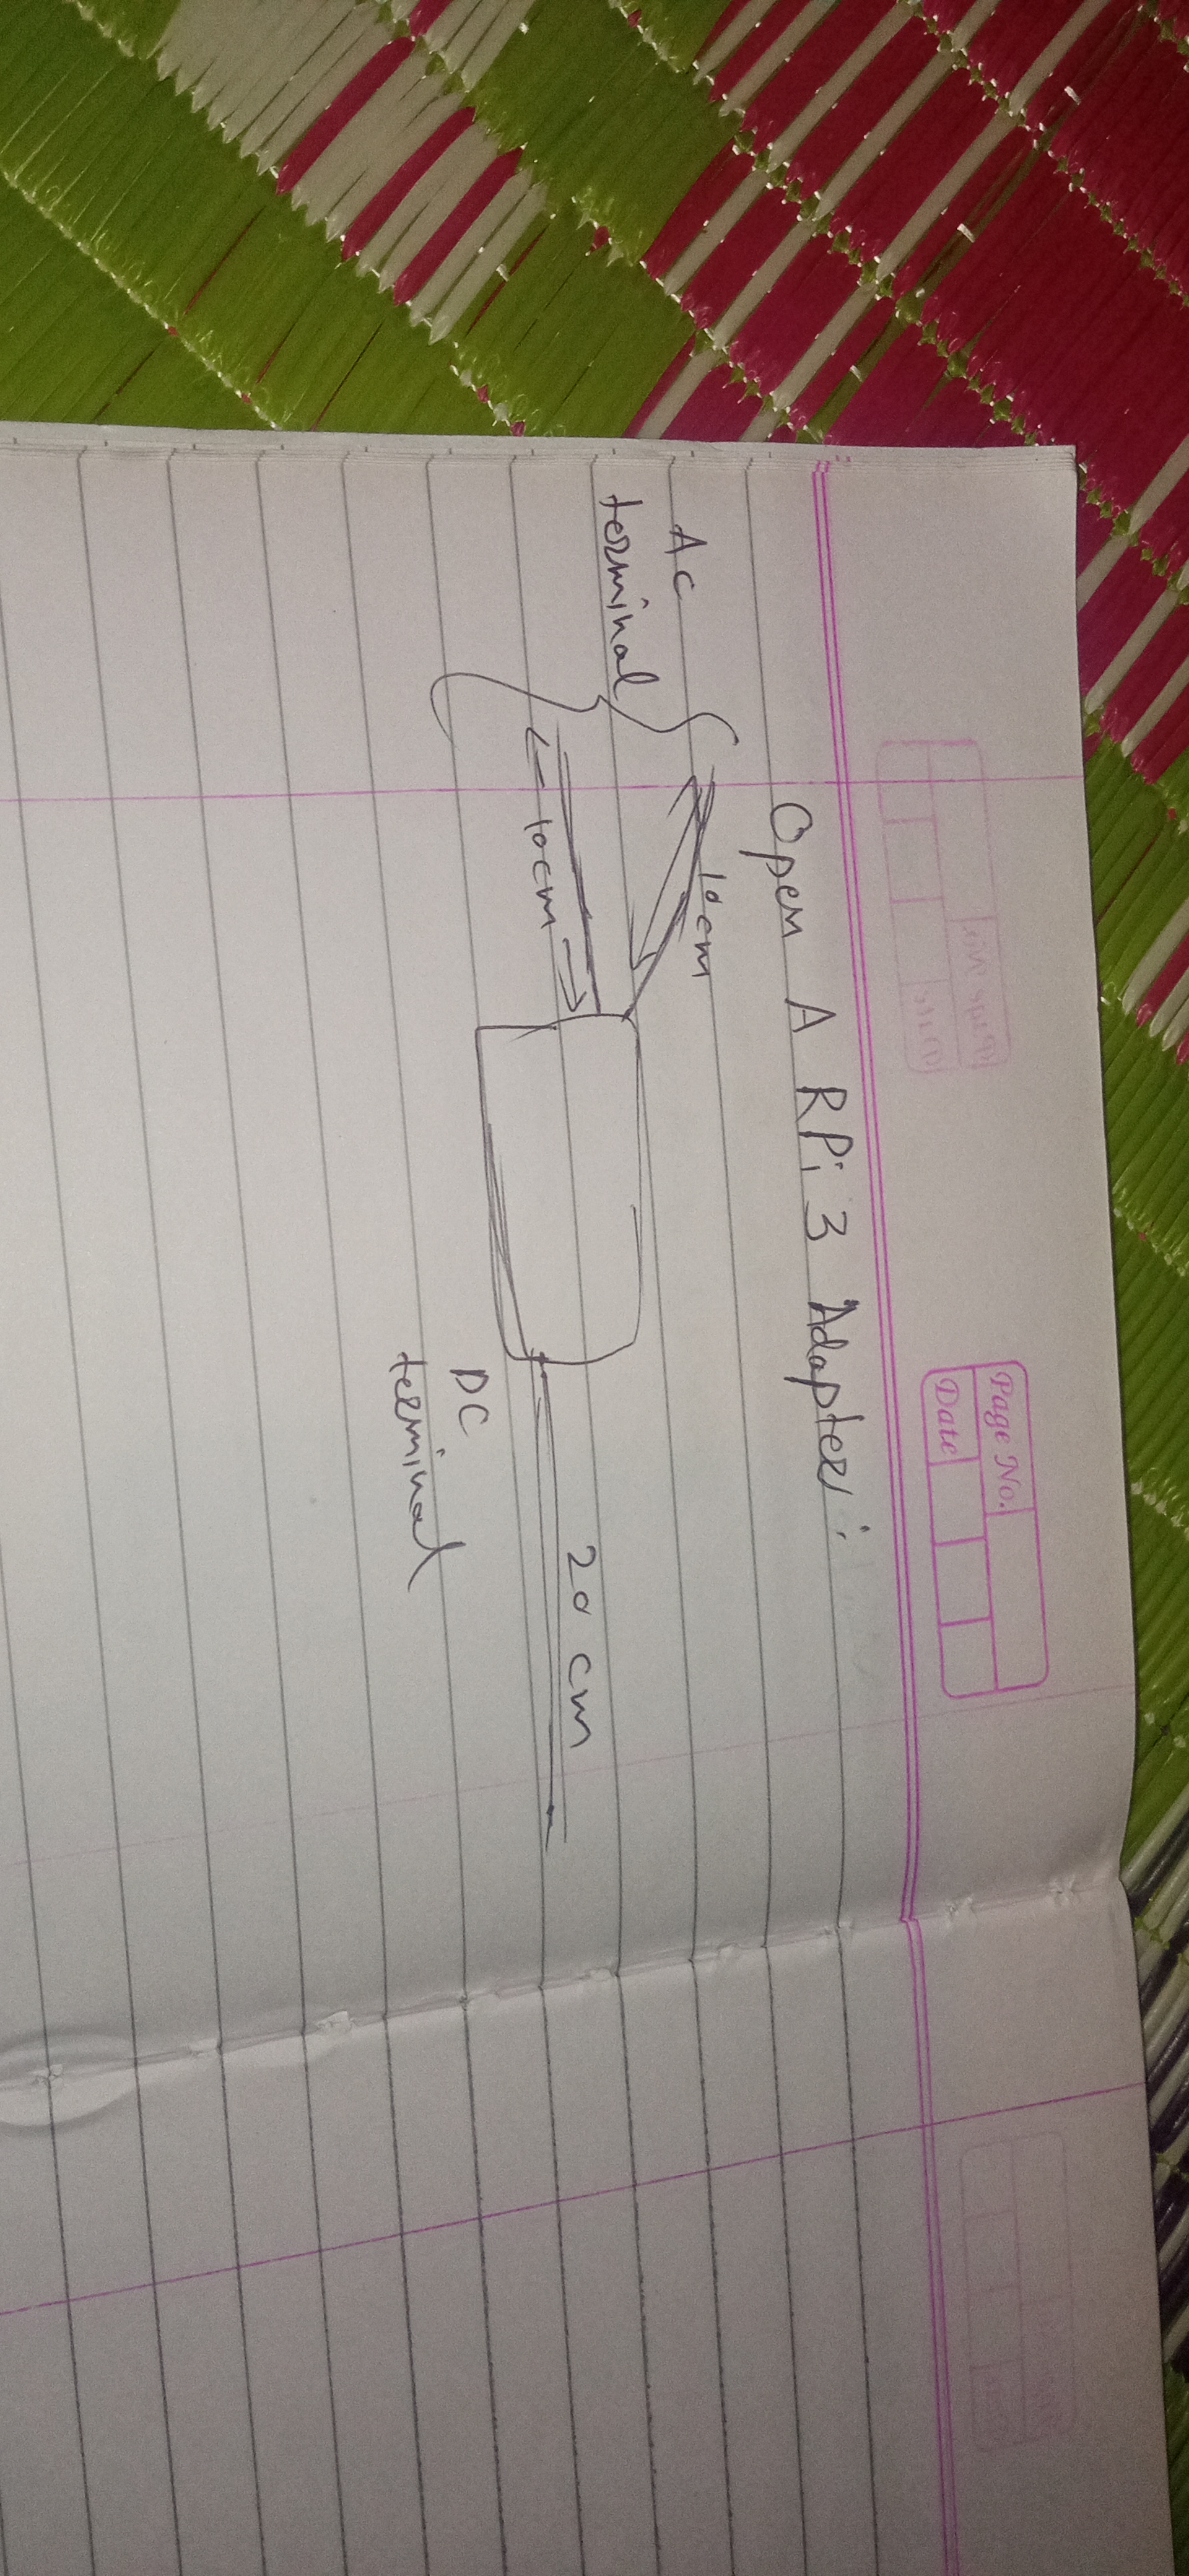 Page No.
Date
Open A RPi 3 Adapter :
10cm
AC
terminal
10cm
20 cm
DC
terminal